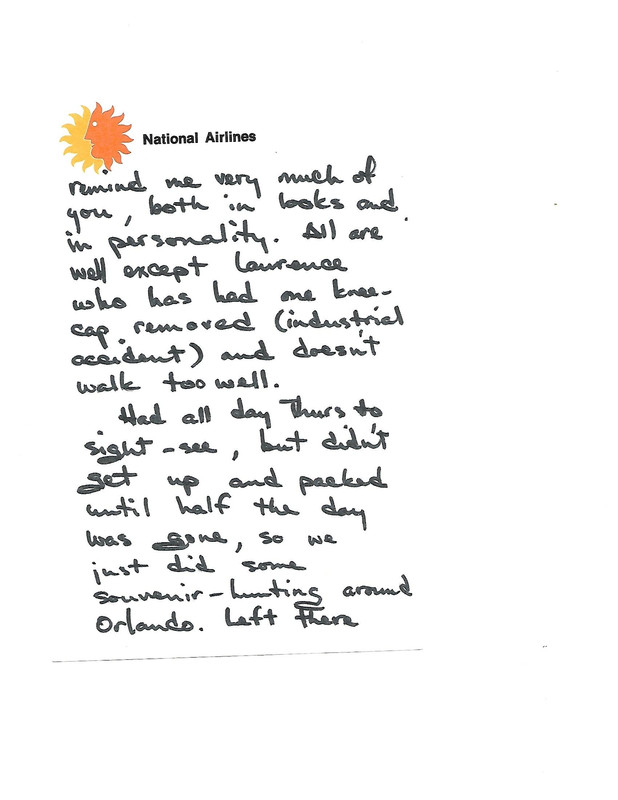 National Airlines
remind me very much of
you, both in looks and
in personality. All are
well except Laurence
who has had one knee-
cap removed (industrial
accident) and doesn't
walk too well.
Had all day Thurs to
sight-see, but didn't
get up and packed
until half the day
was gone, so we
just did some
souvenir-hunting around
Orlando. Left there